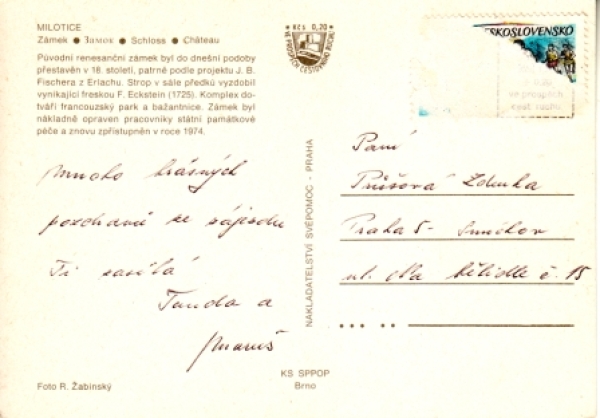 MILOTICE
Zámek ● Замок ● Schloss ● Château
Původní renesanční zámek byl do dnešní podoby
přestavěn v 18. století, patrně podle projektu J. B.
Fischera z Erlachu. Strop v sále předků vyzdobil
vynikající freskou F. Eckstein (1725). Komplex do-
tváří francouzský park a bažantnice. Zámek byl
nákladně opraven pracovníky státní památkové
péče a znovu zpřístupněn v roce 1974.
Kčs 0,20
VE PROSPĚCH ČESTOVNÍHO RUCHU
ČESKOSLOVENSKO
0,20
ve prospěch
cest. ruchu
Mnoho krásných
pozdravů ze zájezdu
Ti zasílá
Tonda a
NAKLADATELSTVÍ SVÉPOMOC - PRAHA
Paní
Zdenka
Praha 5 - Smíchov
ul. Na bělidle č. 15
KS SPPOP
Brno
Foto R. Žabinský